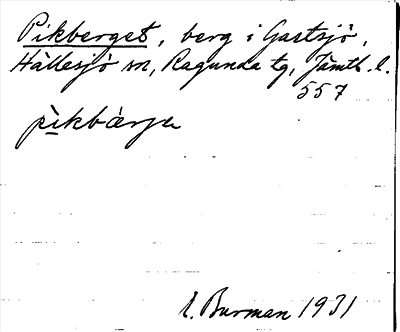 Pikberget, berg i Gastsjö,
Hällesjö sn, Ragunda tg, Jämtl. l.
557
pikbærje
E. Burman 1931